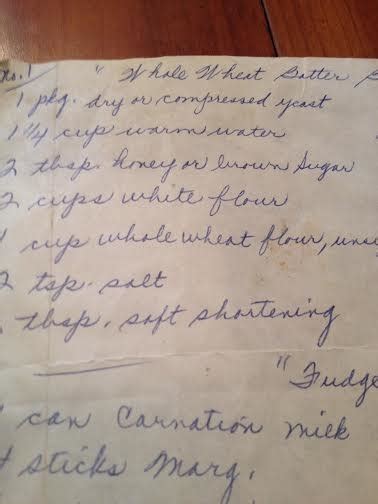 No. 1 " Whole Wheat Batter
1 pkg. dry or compressed yeast
1 1/4 cup warm water
2 tbsp. honey or brown Sugar
2 cups white flour
1 cup whole wheat flour,
2 tsp. salt
tbsp. soft shortening
" Fudge
can Carnation Milk
sticks Marg.